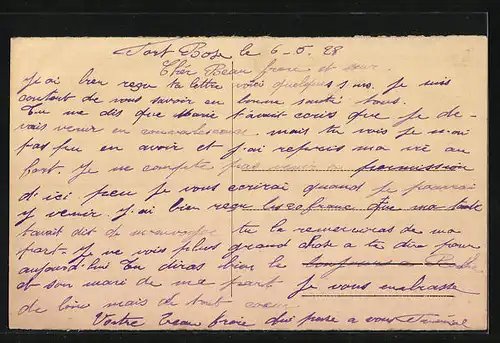 Fort Bose le 6-5. 28
Chér Beau frère et sœur
J'ai bien reçu ta lettre voici quelques j. ma. je suis
contant de vous savoir en bonne santé tous.
Tu me dis que Marie t'avait ecris que je de-
vais venir en convalescence. mais tu vois je n'ai
pas peu en avoir et j'ai repris ma vie au
fort. Je ne compte pas venir en permission
d'ici peu je vous ecrirai quand je pourrai
y venir. J'ai bien reçu les 20 franc que ma tante
t'avait dit de m'envoyer tu la remercieras de ma
part. Je ne vois plus grand chose a te dire pour
aujourd'hui Tu diras bien le bonjours a
et son mari de ma part Je vous embrasse
de loin mais de tout cœur.
Vostre beau frère qui pense a vous